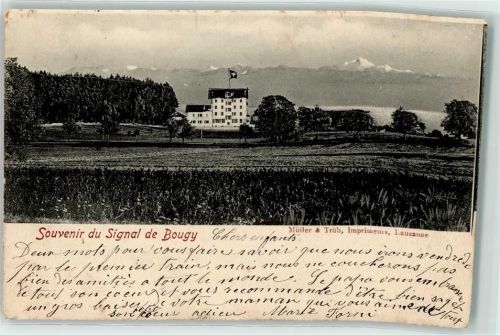 Souvenir du Signal de Bougy
Müller & Trüb, Imprimeurs, Lausanne
Chers enfants
Deux mots pour vous faire savoir que nous irons vendredi
par le premier train, mais nous ne coucherons pas
bien des amitiés a tout le monde. Le papa vous embrasse
de tout son coeur et vous recommande d'être bien sages
un gros baiser de votre maman qui vous aime
adieu